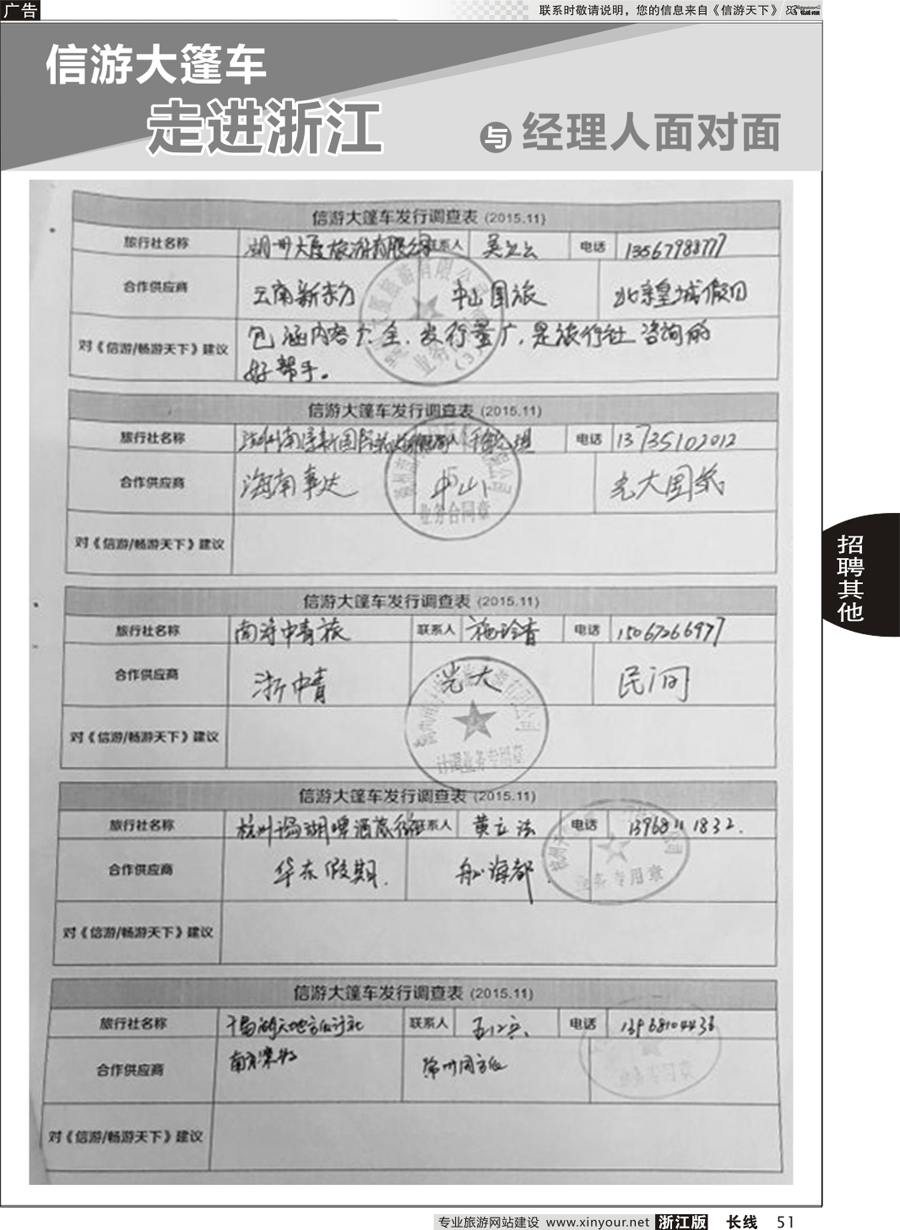 广告
联系时敬请说明，您的信息来自《信游天下》
信游大篷车
走进浙江
与 经理人面对面
信游大篷车发行调查表 (2015.11)
旅行社名称 湖州大厦旅游有限公司 联系人 吴 电话 13567988777
合作供应商 云南新东方 中山国旅 北京皇城假日
对《信游/畅游天下》建议 包涵内容广、全，发行量广，是旅行社咨询的
好帮手。
信游大篷车发行调查表 (2015.11)
旅行社名称 湖州南浔新国 联系人 电话 13735102012
合作供应商 海南事达 中山 光大国旅
业务合同章
对《信游/畅游天下》建议
信游大篷车发行调查表 (2015.11)
旅行社名称 南浔中青旅 联系人 施玲香 电话 15067266977
合作供应商 浙中青 光大 民间
计调业务专用章
对《信游/畅游天下》建议
信游大篷车发行调查表 (2015.11)
旅行社名称 杭州千岛湖啤酒旅行社 联系人 黄立法 电话 13968111832.
合作供应商 华东假期. 舟山海都.
业务专用章
对《信游/畅游天下》建议
信游大篷车发行调查表 (2015.11)
旅行社名称 千岛湖天地方旅行社 联系人 电话 13968104433
合作供应商 常州同方旅
对《信游/畅游天下》建议
招聘其他
专业旅游网站建设 www.xinyour.net 浙江版 长线 51